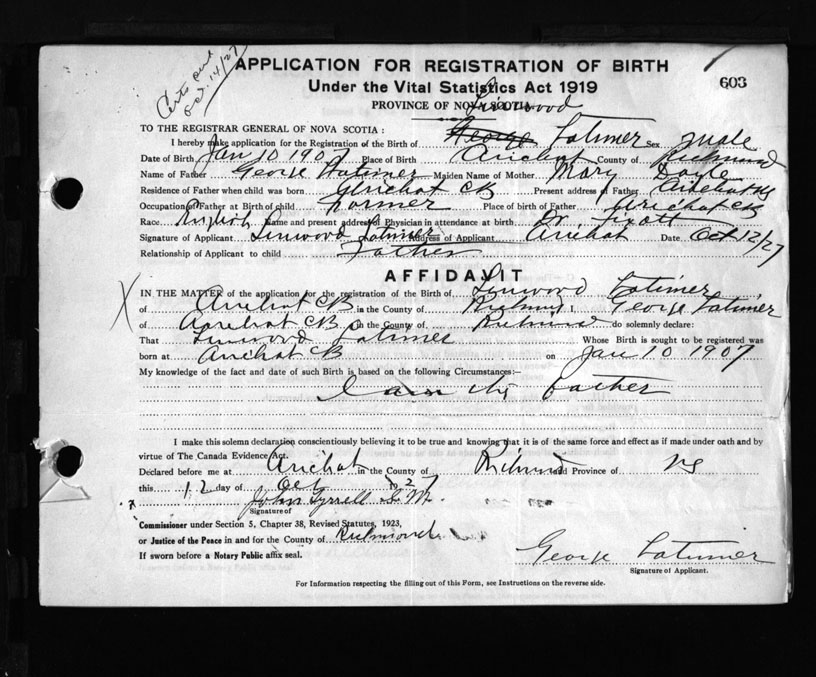 Certs send
Oct. 14/27
APPLICATION FOR REGISTRATION OF BIRTH
Under the Vital Statistics Act 1919
603
PROVINCE OF NOVA SCOTIA
Linwood
TO THE REGISTRAR GENERAL OF NOVA SCOTIA :
I hereby make application for the Registration of the Birth of George Latimer Sex Male
Date of Birth Jan 10 1907 Place of Birth Arichat County of Richmond
Name of Father George Latimer Maiden Name of Mother Mary Doyle
Residence of Father when child was born Arichat CB Present address of Father Arichat NS
Occupation of Father at Birth of child Farmer Place of birth of Father Arichat CB
Race English Name and present address of Physician in attendance at birth Dr.
Signature of Applicant Linwood Latimer Address of Applicant Arichat Date Oct 12/27
Relationship of Applicant to child Father
AFFIDAVIT
X
IN THE MATTER of the application for the registration of the Birth of Linwood Latimer
of Arichat CB in the County of Richmond I, George Latimer
of Arichat CB in the County of Richmond do solemnly declare:
That Linwood Latimer Whose Birth is sought to be registered was
born at Arichat CB on Jan 10 1907
My knowledge of the fact and date of such Birth is based on the following Circumstances:—
I am his father
I make this solemn declaration conscientiously believing it to be true and knowing that it is of the same force and effect as if made under oath and by
virtue of The Canada Evidence Act.
Declared before me at Arichat in the County of Richmond and Province of NS
this 12 day of Oct 1927
x John Tyrrell S.M.
Signature of
Commissioner under Section 5, Chapter 38, Revised Statutes, 1923,
or Justice of the Peace in and for the County of Richmond
If sworn before a Notary Public affix seal.
George Latimer
Signature of Applicant.
For Information respecting the filling out of this Form, see Instructions on the reverse side.